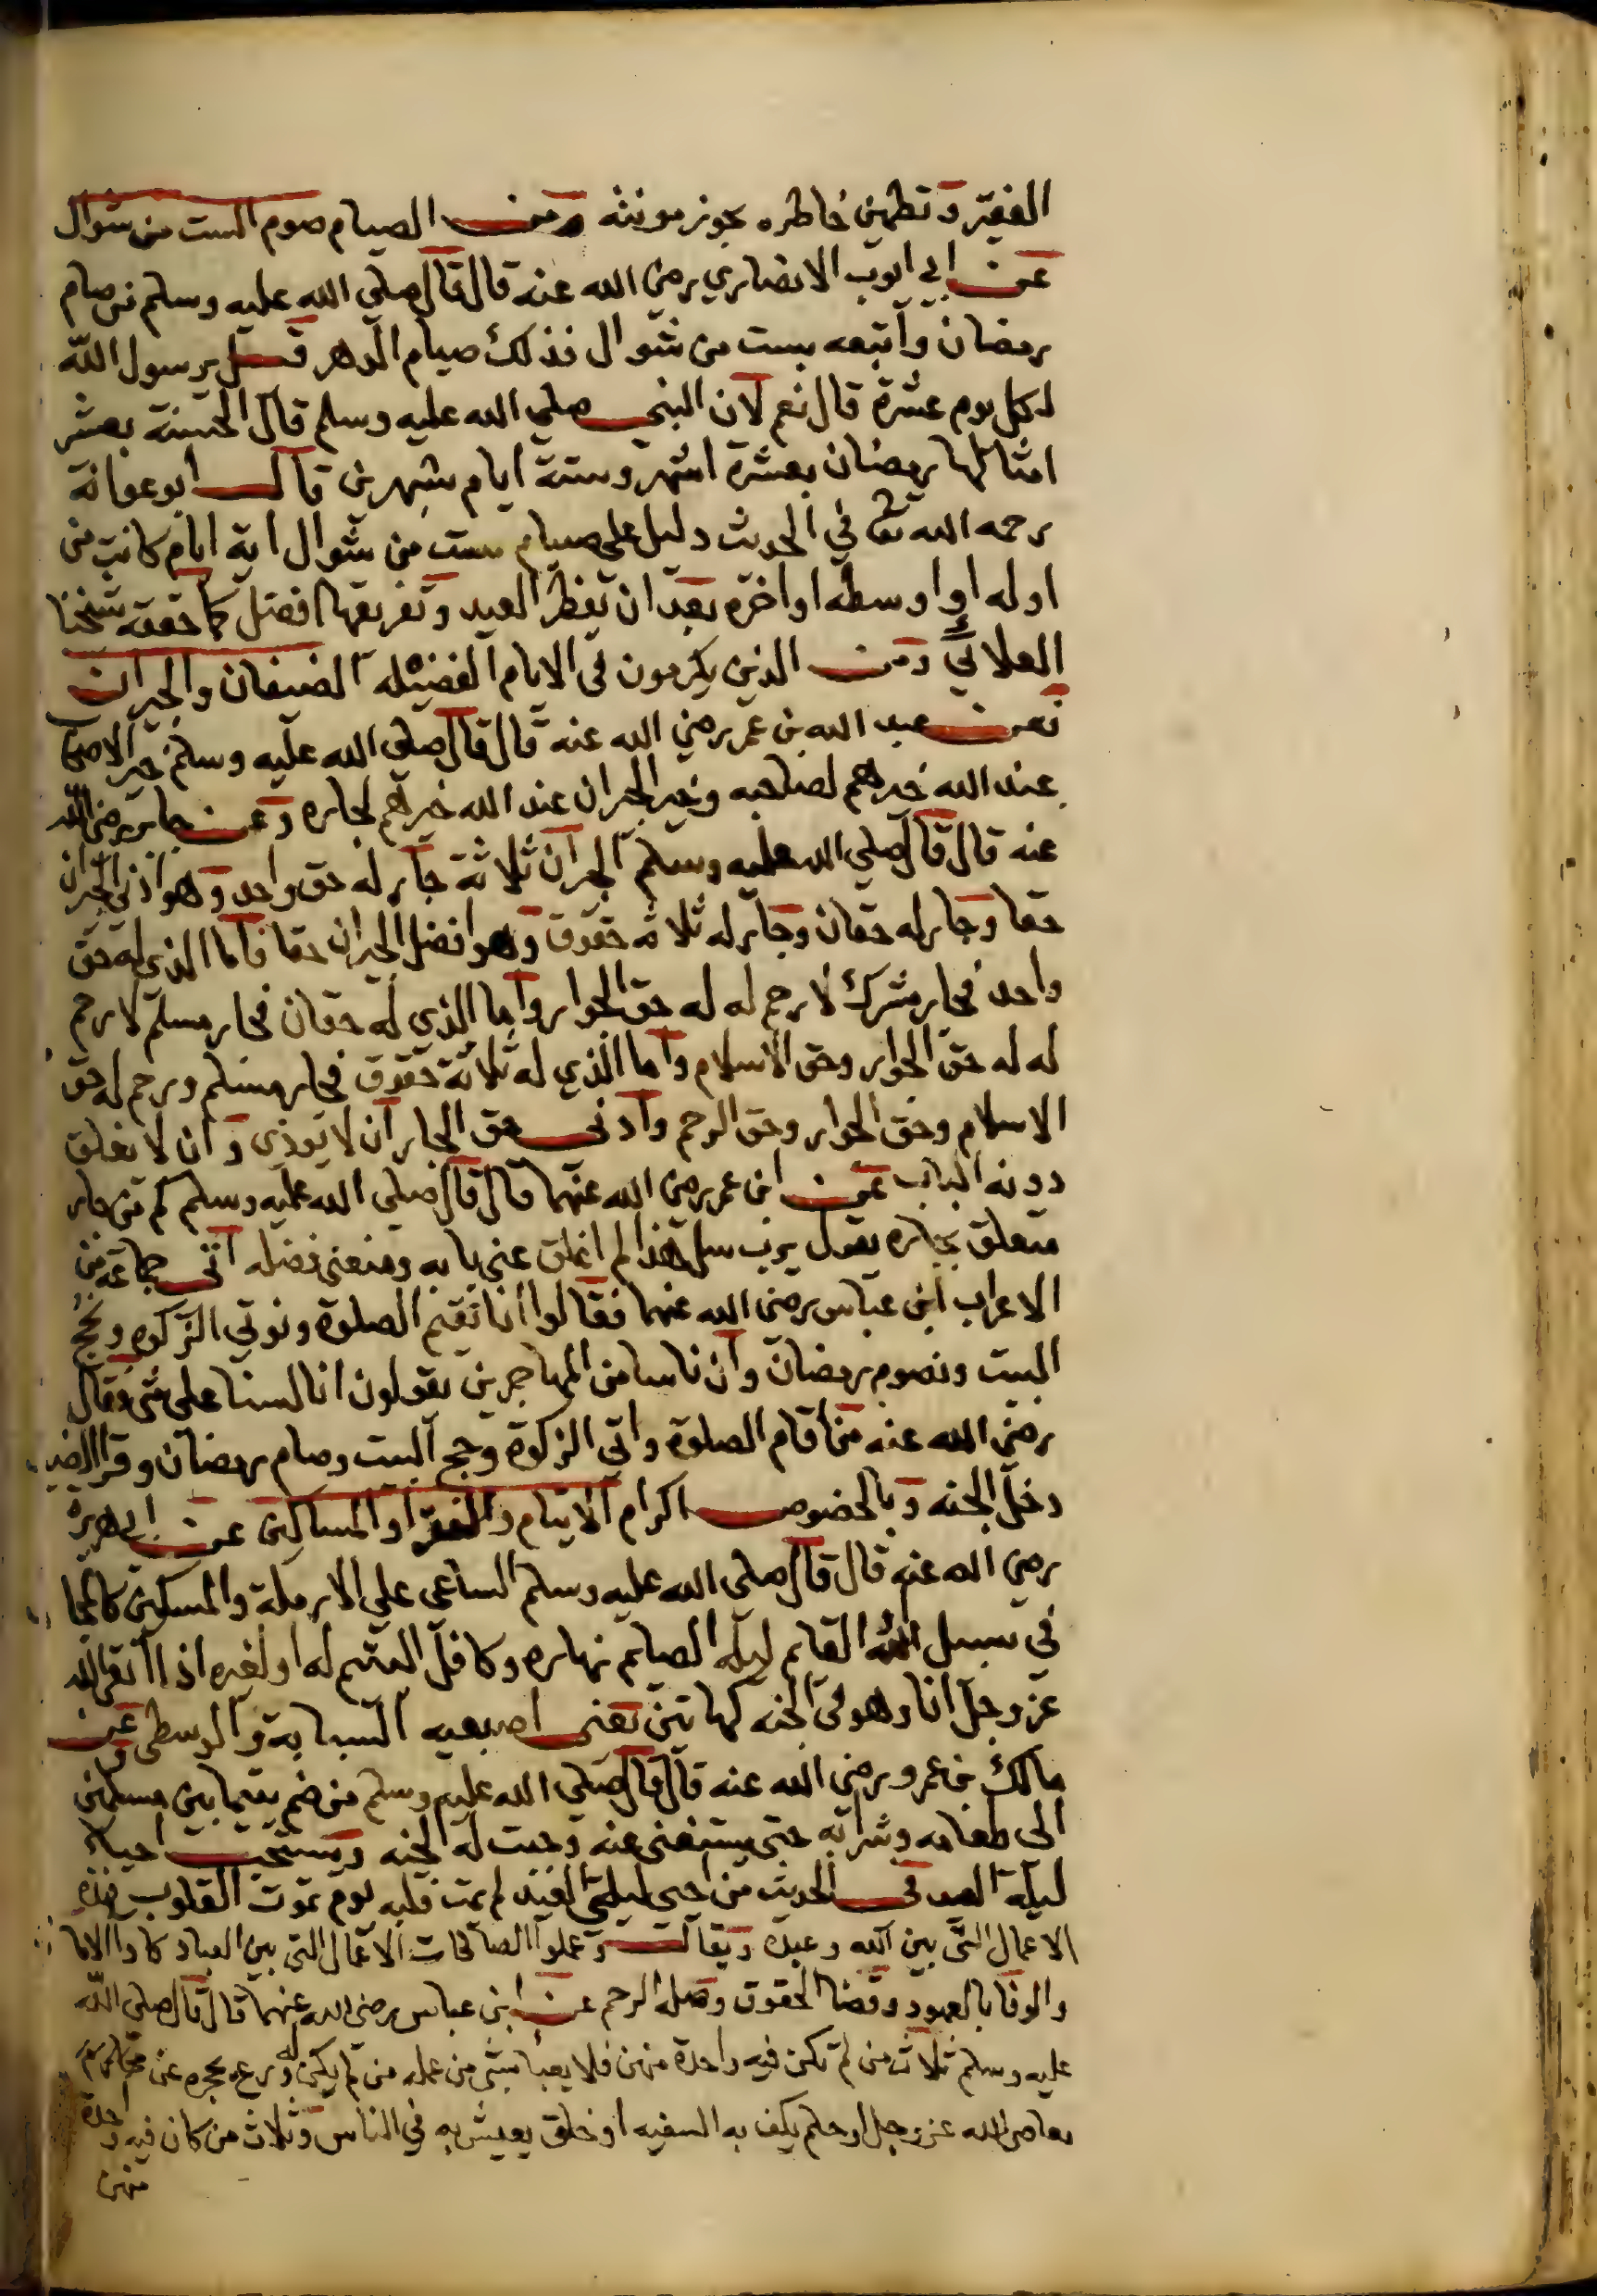 الفقير وتطمين خاطره بجوز مونته ومن الصيام صوم الست من شوال
عن ابي ايوب الانصاري رضي الله عنه قال قال صلى الله عليه وسلم من صام
رمضان واتبعه بست من شوال فذلك صيام الدهر قيل يرسول الله
لكل يوم عشرة قال نعم لان النبي صلى الله عليه وسلم قال الحسنة بعشر
امثالها رمضان بعشرة اشهر وستة ايام بشهرين قال ابو عوانة
رحمه الله تعا في الحديث دليل على صيام ست من شوال اية ايام كانت من
اوله او اوسطه او اخره بعد ان يفطر العيد وتفريقها افضل كما حققه شيخنا
العلائي ومن الذين يكرمون في الايام الفضيله الضيفان والجيران
فعن عبد الله بن عمر رضي الله عنه قال قال صلى الله عليه وسلم خير الاصحاب
عند الله خيرهم لصاحبه وخير الجيران عند الله خيرهم لجاره وعن جابر رضي الله
عنه قال قال صلى الله عليه وسلم الجيران ثلاثة جار له حق واحد وهو ادنى الجيران
حقا وجار له حقان وجار له ثلاثة حقوق وهو افضل الجيران حقا فاما الذي له حق
واحد فجار مشرك لا رحم له له حق الجوار واما الذي له حقان فجار مسلم لا رحم
له له حق الجوار وحق الاسلام واما الذي له ثلاثة حقوق فجار مسلم ورحم له حق
الاسلام وحق الجوار وحق الرحم وادنى حق الجار ان لا توذي وان لا يغلق
دونه الباب عن ابن عمر رضي الله عنهما قال قال صلى الله عليه وسلم كم من جار
متعلق بجاره يقول يرب سل هذا لم اغلق عني بابه ومنعني فضله اتى جماعة من
الاعراب ابن عباس رضي الله عنهما فقالوا انا نقيم الصلوة ونوتي الزكوة ونحج
البيت ونصوم رمضان وان ناسا من المهاجرين يقولون انا لسنا على شي فقال
رضي الله عنه من اقام الصلوة واتى الزكوة وحج البيت وصام رمضان وقرا الضيف
دخل الجنه وبالخصوص اكرام الايتام والفقرا والمساكين عن ابي هريرة
رضي الله عنه قال قال صلى الله عليه وسلم الساعي على الارملة والمسكين كالمجا
في سبيل الله القايم ليله الصايم نهاره وكافل اليتيم له او لغيره اذا اتقى الله
عز وجل انا وهو في الجنه كهاتين يعني اصبعيه السبابة والوسطى وعن
مالك بن عمرو رضي الله عنه قال قال صلى الله عليه وسلم من ضم يتيما بين مسلمين
الى طعامه وشرابه حتى يستغني عنه وجبت له الجنه ويستحب احياء
ليلة العيد في الحديث من احيى ليلتي العيد لم يمت قلبه يوم تموت القلوب هذه
الاعمال التي بين الله وعبده ويقال وعملوا الصالحات الاعمال التي بين العباد كاداالاما
والوفا بالعهود وقضا الحقوق وصلة الرحم عن ابن عباس رضي الله عنهما قال قال صلى الله
عليه وسلم ثلاث من لم تكن فيه واحدة منهن فلا يعبأ بشي من عمله من لم يكن له ورع يحجره عن محارم
معاصي الله عز وجل او حلم يكف به السفيه او خلق يعيش به في الناس وثلاث من كان فيه واحدة
منهن